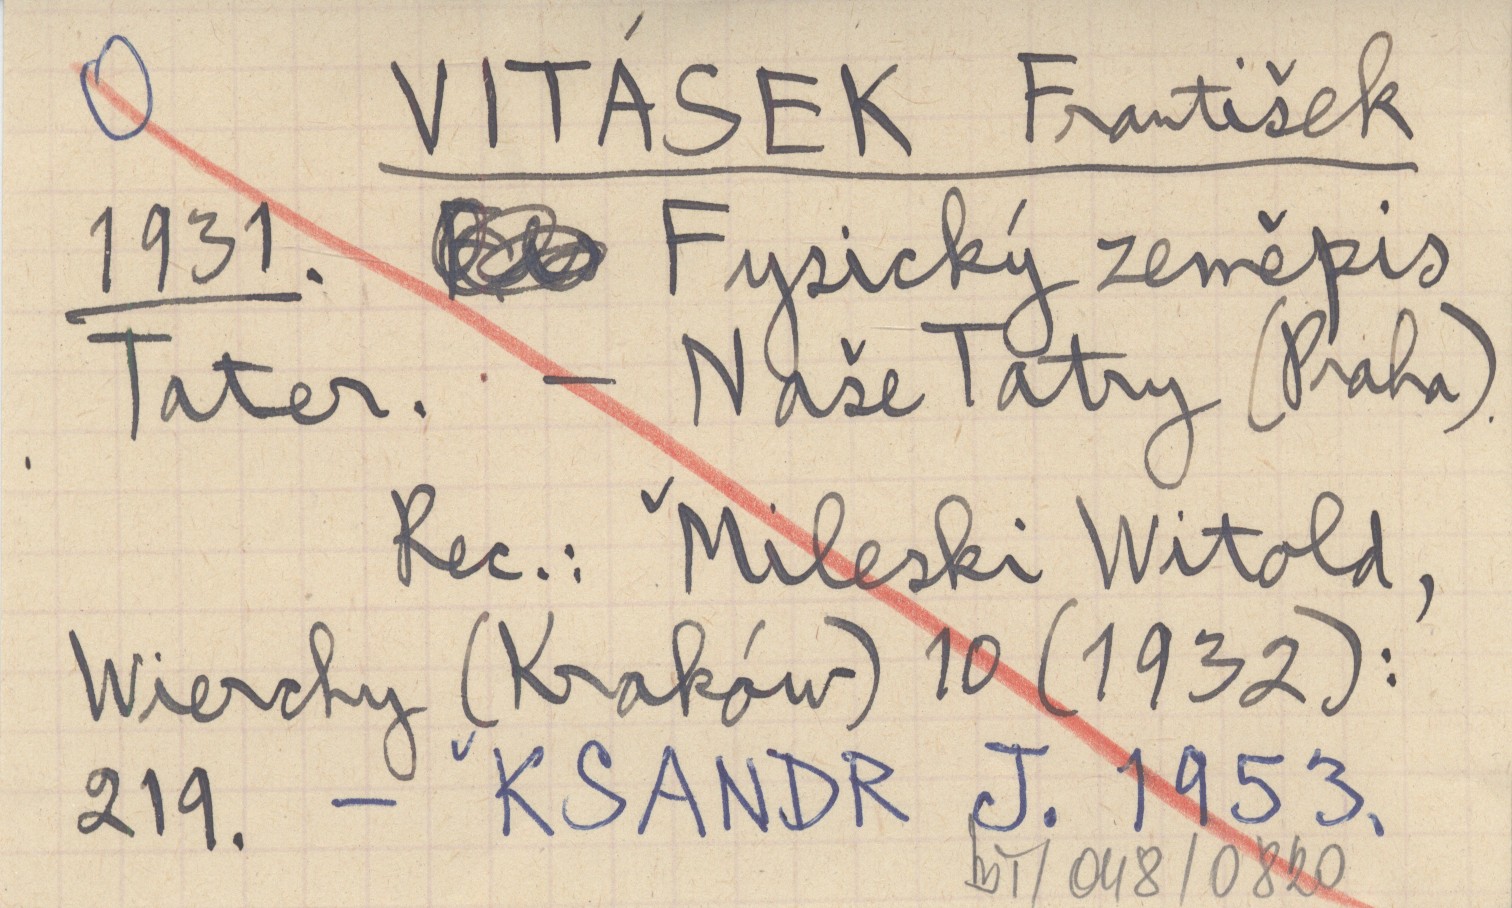 VITÁSEK František
1931. Fysický zeměpis
Tater. – Naše Tatry (Praha).
Rec.: ˇMileski Witold,
Wierchy (Kraków) 10 (1932):
219. – ˇKSANDR J. 1953.
/048/0820